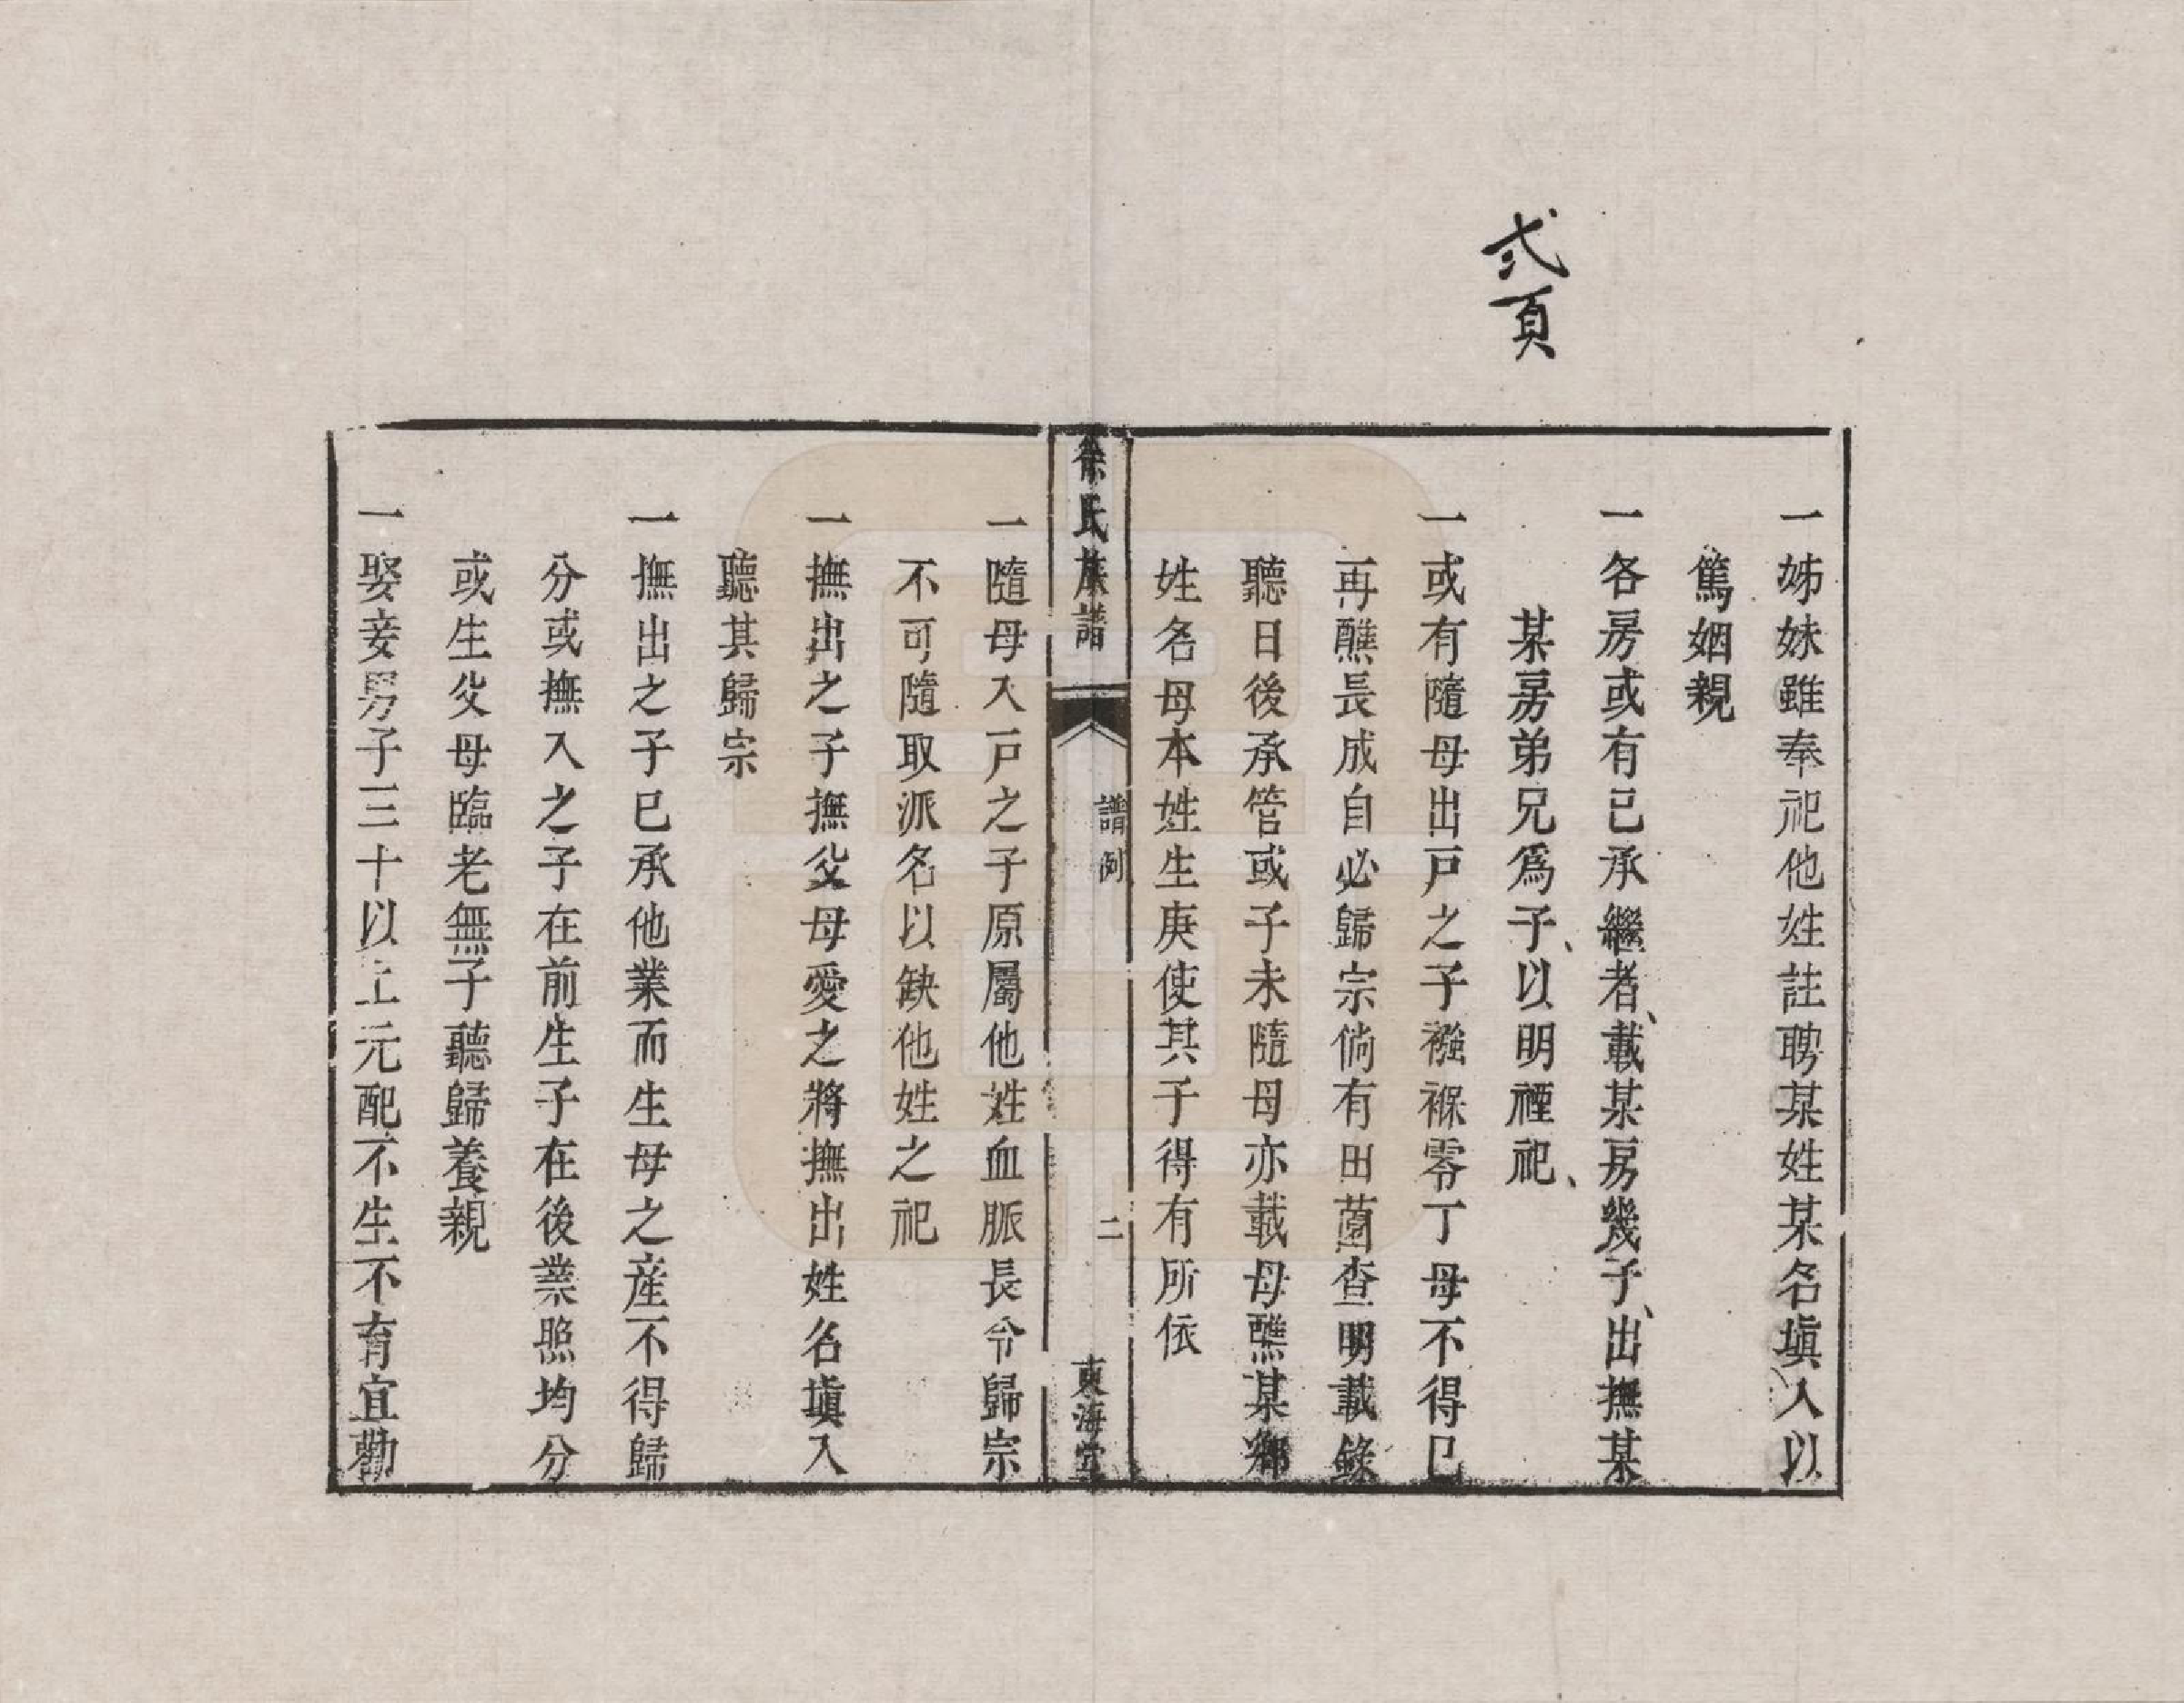 弍頁
一姊妹雖奉祀他姓註聘某姓某名塡入以
篤姻親
一各房或有已承繼者、載某房幾子、出撫某
某房弟兄爲子、以明禋祀、
一或有隨母出戸之子襁褓零丁母不得已
再醮長成自必歸宗倘有田薗查明載錄
聽日後承管或子未隨母亦載母醮某鄉
姓名母本姓生庚使其子得有所依
徐氏族譜
譜例
二
東海堂
一隨母入戸之子原屬他姓血脈長令歸宗
不可隨取派名以缺他姓之祀
一撫出之子撫父母愛之將撫出姓名塡入
聽其歸宗
一撫出之子已承他業而生母之産不得歸
分或撫入之子在前生子在後業照均分
或生父母臨老無子聽歸養親
一娶妾男子三十以上元配不生不育宜勸